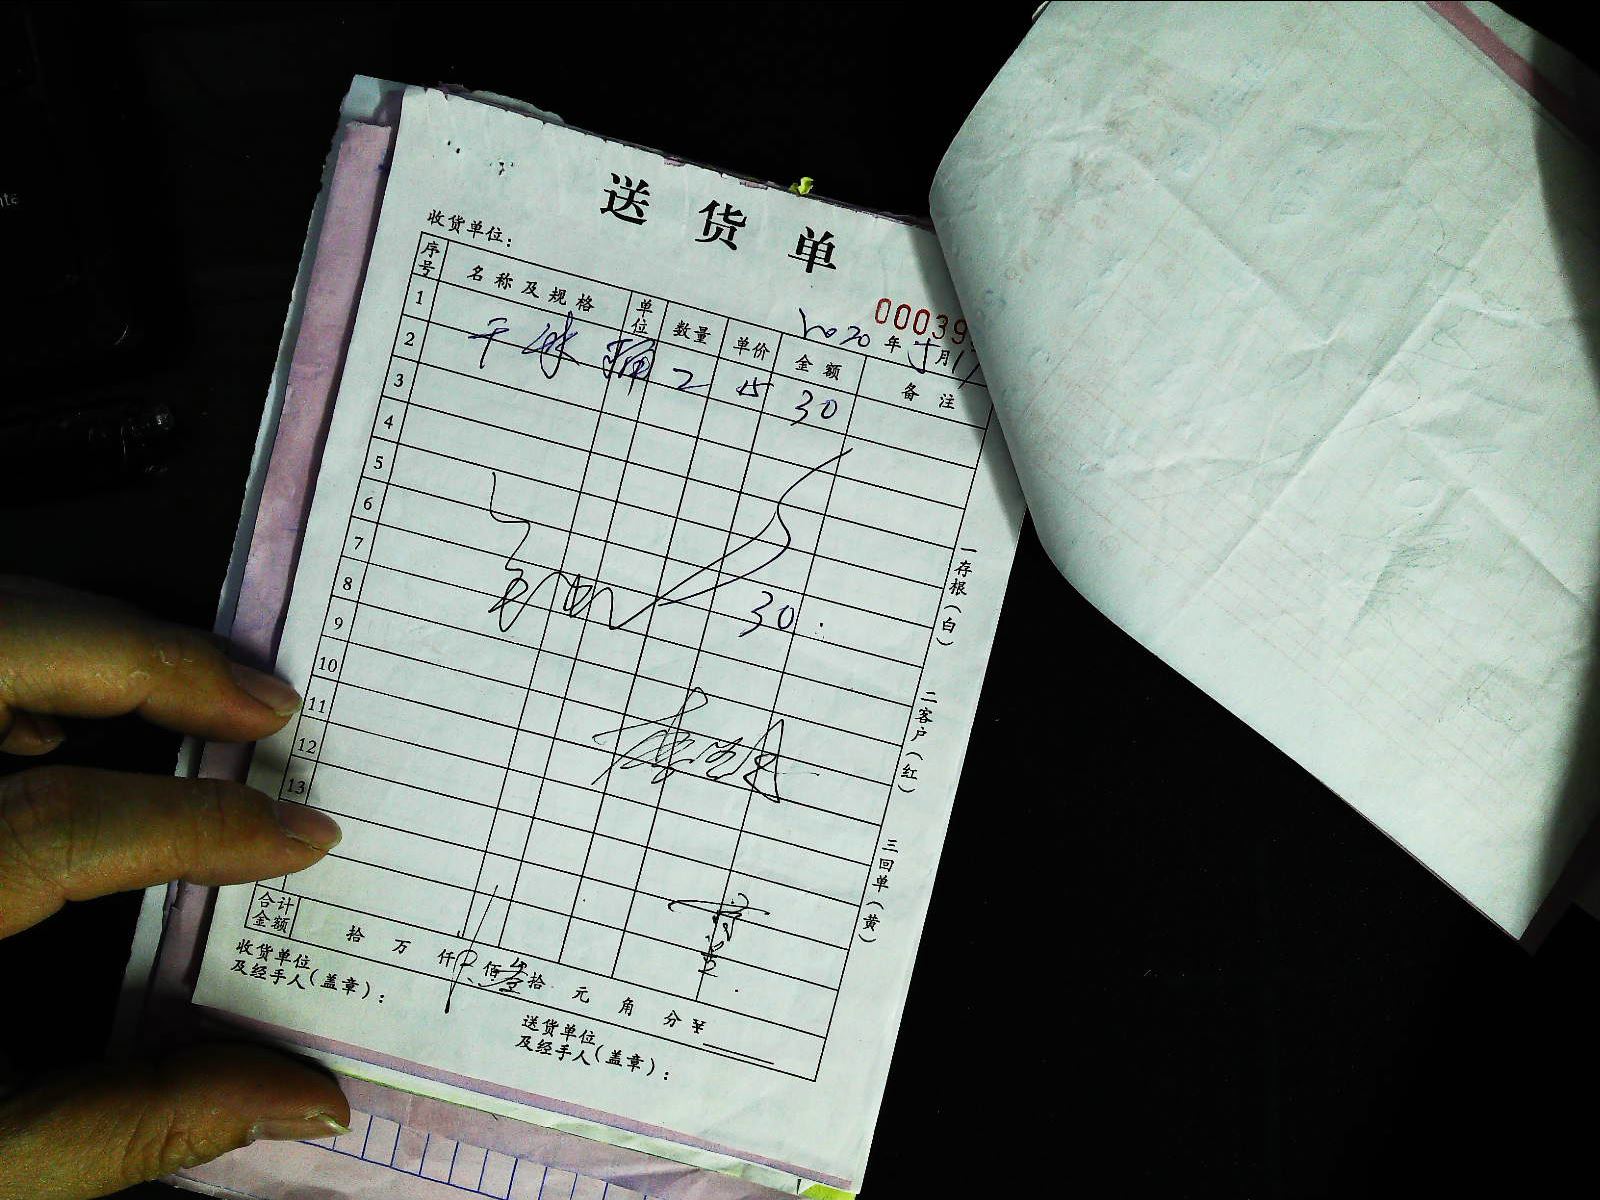 送货单
收货单位：
00039
2020年5月17
序号 名称及规格 单位 数量 单价 金额 备注
1 2 15 30
2
3
4
5
6
7
8 30
9
10
11
12
13
合计金额 拾 万 仟 佰 叁拾 元 角 分 ¥
收货单位及经手人（盖章）：
送货单位及经手人（盖章）：
一存根（白）
二客户（红）
三回单（黄）